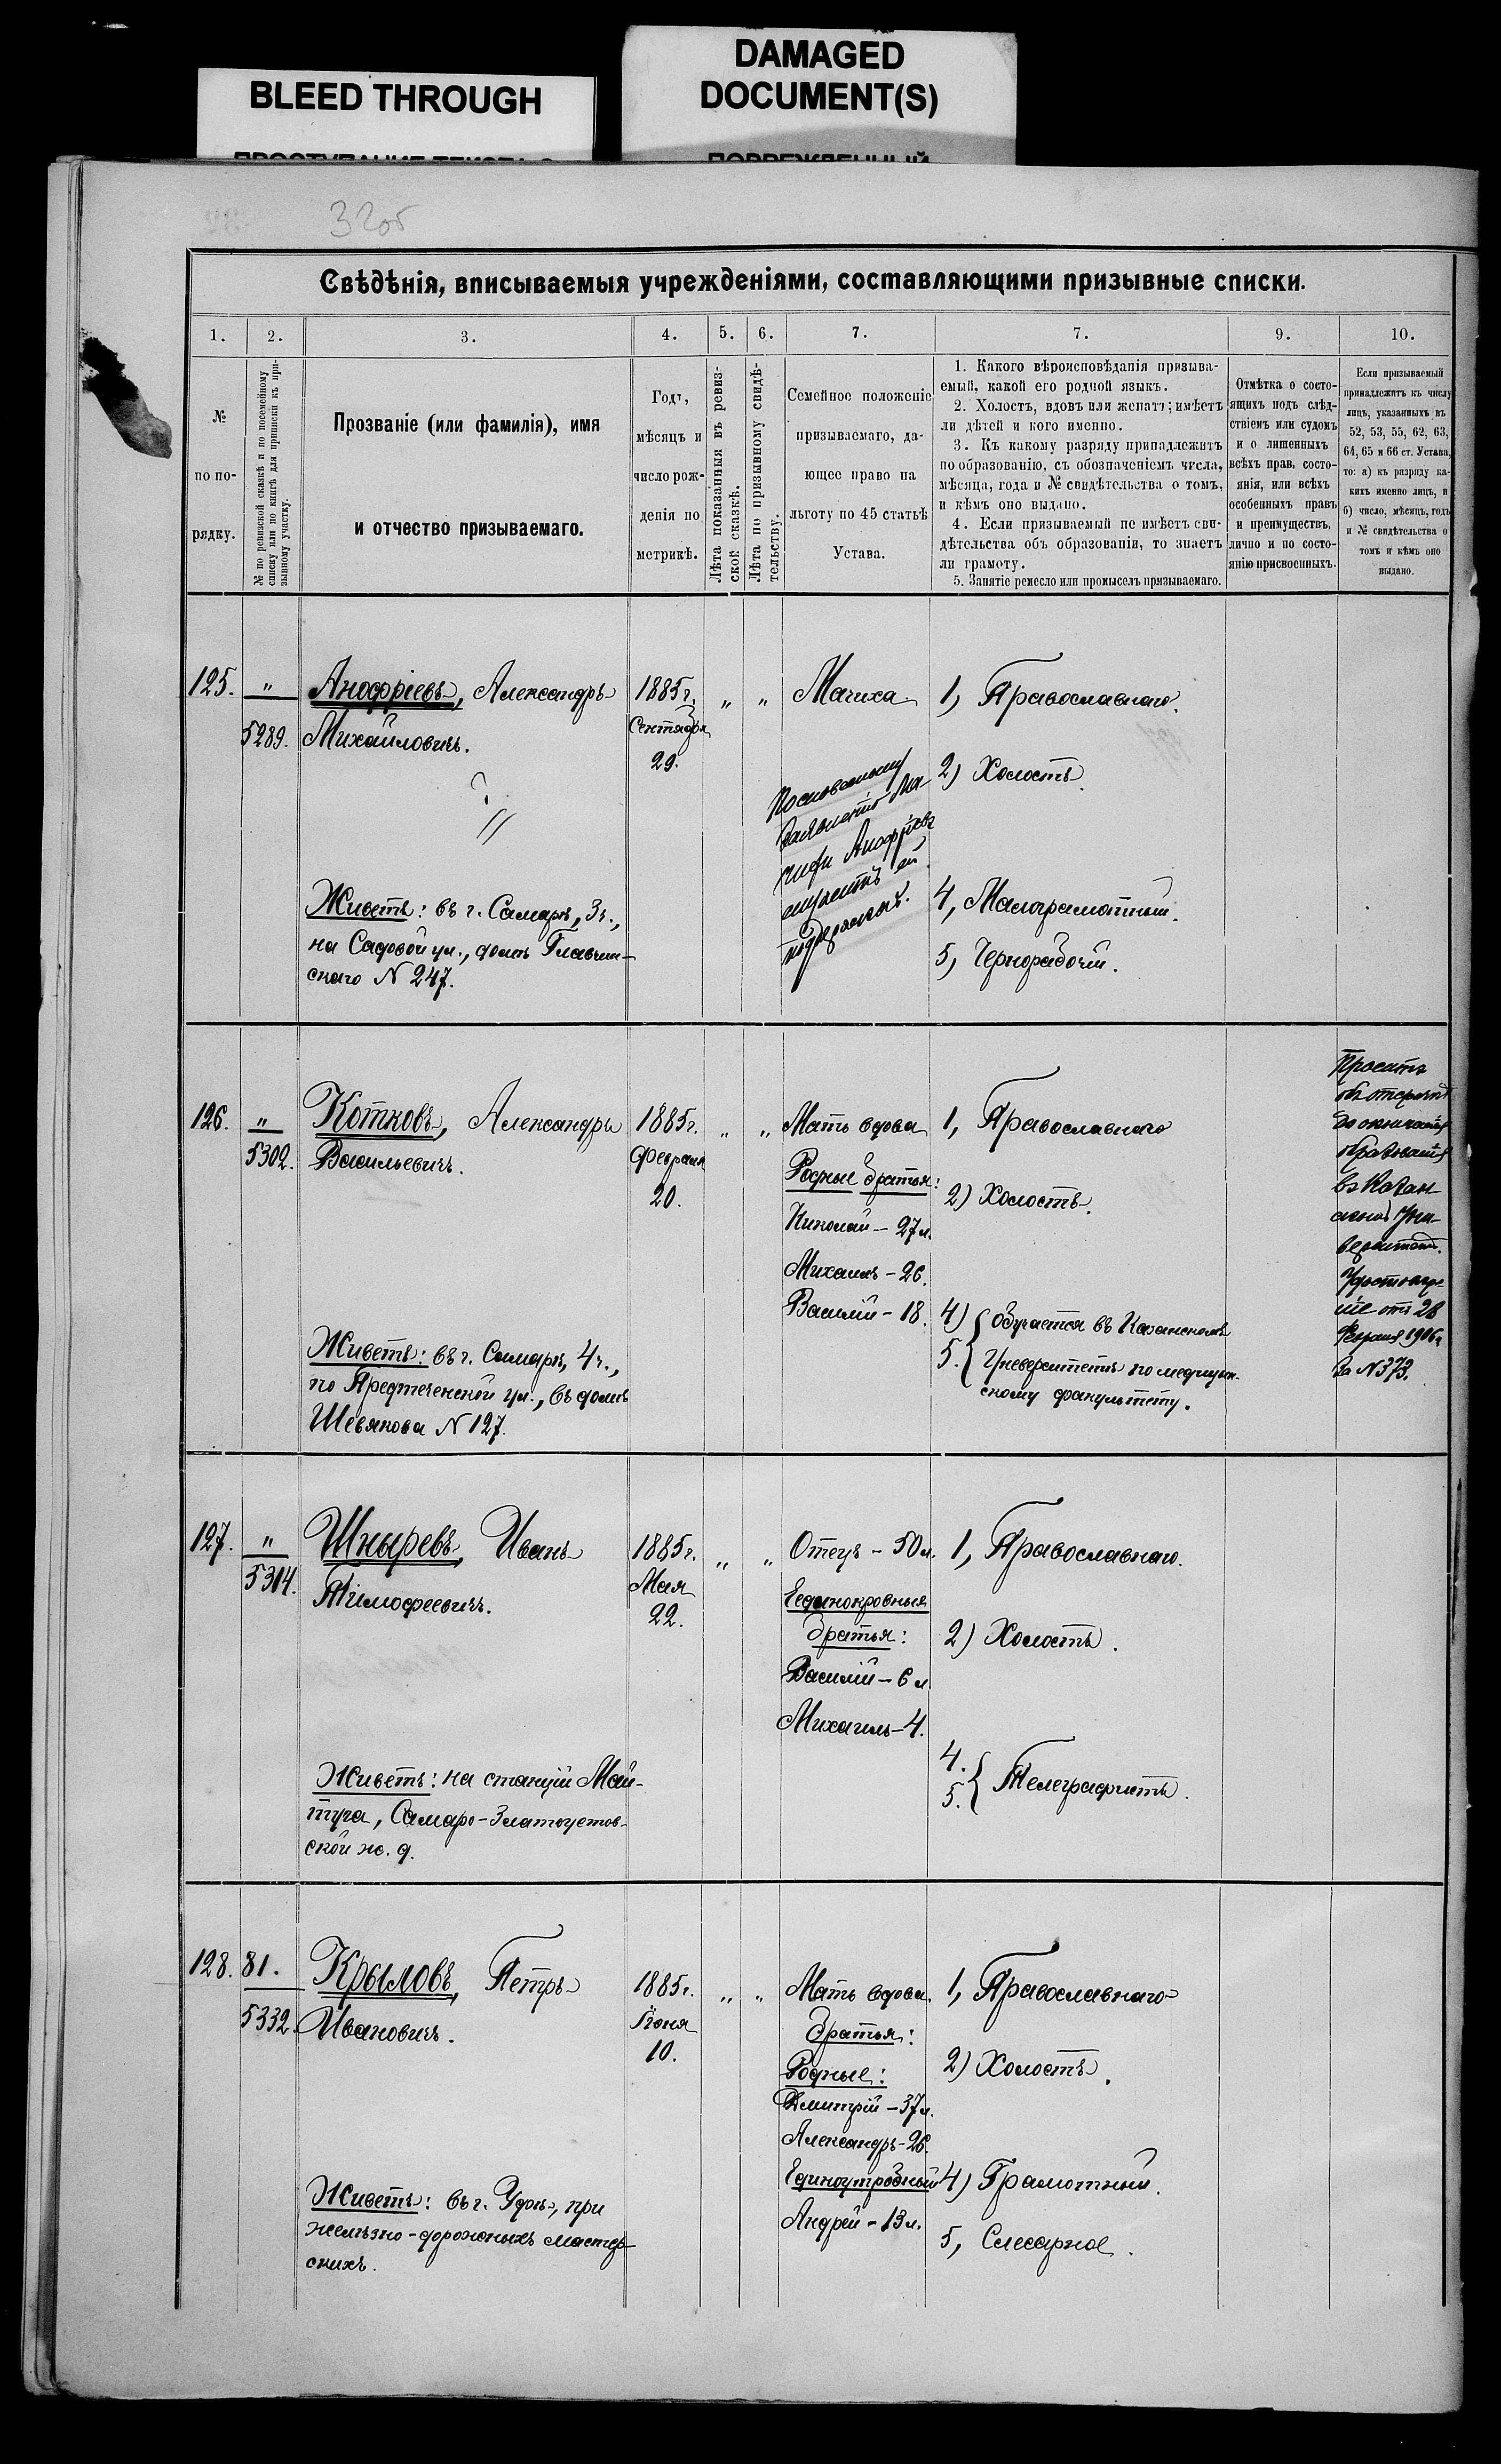 BLEED THROUGH
DAMAGED
DOCUMENT(S)
32об
Свѣдѣнія, вписываемыя учрежденіями, составляющими призывные списки.
1. 2. 3. 4. 5. 6. 7. 7. 9. 10.
№
по по-
рядку.
№ по ревизской сказкѣ и по посемейному
списку или по книгѣ для приписки къ при-
зывному участку.
Прозваніе (или фамилія), имя
и отчество призываемаго.
Годъ,
мѣсяцъ и
число рож-
денія по
метрикѣ.
Лѣта показанныя въ ревиз-
ской сказкѣ.
Лѣта по призывному свидѣ-
тельству.
Семейное положеніе
призываемаго, да-
ющее право на
льготу по 45 статьѣ
Устава.
1. Какого вѣроисповѣданія призыва-
емый, какой его родной языкъ.
2. Холостъ, вдовъ или женатъ; имѣетъ
ли дѣтей и кого именно.
3. Къ какому разряду принадлежитъ
по образованію, съ обозначеніемъ числа,
мѣсяца, года и № свидѣтельства о томъ,
и кѣмъ оно выдано.
4. Если призываемый не имѣетъ сви-
дѣтельства объ образованіи, то знаетъ
ли грамоту.
5. Занятіе ремесло или промыселъ призываемаго.
Отмѣтка о состо-
ящихъ подъ слѣд-
ствіемъ или судомъ
и о лишенныхъ
всѣхъ прав, состо-
янія, или всѣхъ
особенныхъ правъ
и преимуществъ,
лично и по состо-
янію присвоенныхъ.
Если призываемый
принадлежитъ къ числу
лицъ, указанныхъ въ
52, 53, 55, 62, 63,
64, 65 и 66 ст. Устава,
то: а) къ разряду ка-
кихъ именно лицъ, и
б) число, мѣсяцъ, годъ
и № свидѣтельства о
томъ и кѣмъ оно
выдано.
125. "
5289.
Анофріевъ, Александръ
Михайловичъ.
Живетъ: въ г. Самарѣ, 3ч.,
на Садовой ул., домъ Главчин-
скаго N 247.
1885г.
Сентября
29.
" "
Мачиха
заявленію Ма-
чихи Анофріевъ
1, Православнаго.
2) Холостъ.
4, Малограмотный.
5, Чернорабочій.
126. "
5302.
Котковъ, Александръ
Васильевичъ.
Живетъ: въ г. Самарѣ, 4ч.,
по Предтеченской ул., въ домѣ
Шевякова N 127.
1885г.
Февраля
20.
" "
Мать вдова
Родные братья:
Николай - 27л.
Михаилъ - 26.
Василій - 18.
1, Православнаго
2) Холостъ.
4) Обучается въ Казанскомъ
5. Университетѣ по медицин-
скому факультету.
Проситъ
объ отсрочкѣ
до окончанія
образованія
въ Казан
скомъ Уни-
верситетѣ.
Удостовѣре-
ніе отъ 28
Февраля 1906г.
за N 373.
127. "
5314.
Шныревъ, Иванъ
Тимофеевичъ.
Живетъ: на станціи Май-
туга, Самаро-Златоустов-
ской ж. д.
1885г.
Мая
22.
" "
Отецъ - 50л.
Единокровныя
братья:
Василій - 6 л
Михаилъ - 4.
1, Православнаго.
2) Холостъ.
4.
5. Телеграфистъ.
128. 81.
5332.
Крыловъ, Петръ
Ивановичъ.
Живетъ: въ г. Уфѣ, при
желѣзно-дорожныхъ мастер-
скихъ.
1885г.
Іюня
10.
" "
Мать вдова.
Братья:
Родные:
Дмитрій - 37л.
Александръ - 26.
Единоутробный
Андрей - 13л.
1, Православнаго
2) Холостъ.
4) Грамотный.
5, Слесарное.